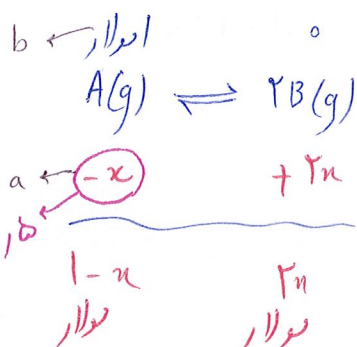 b ← ۱مولار ۰
A(g) ⇌ ۲B(g)
a ← -x + ۲x
۵ر
۱-x ۲x
مولار مولار